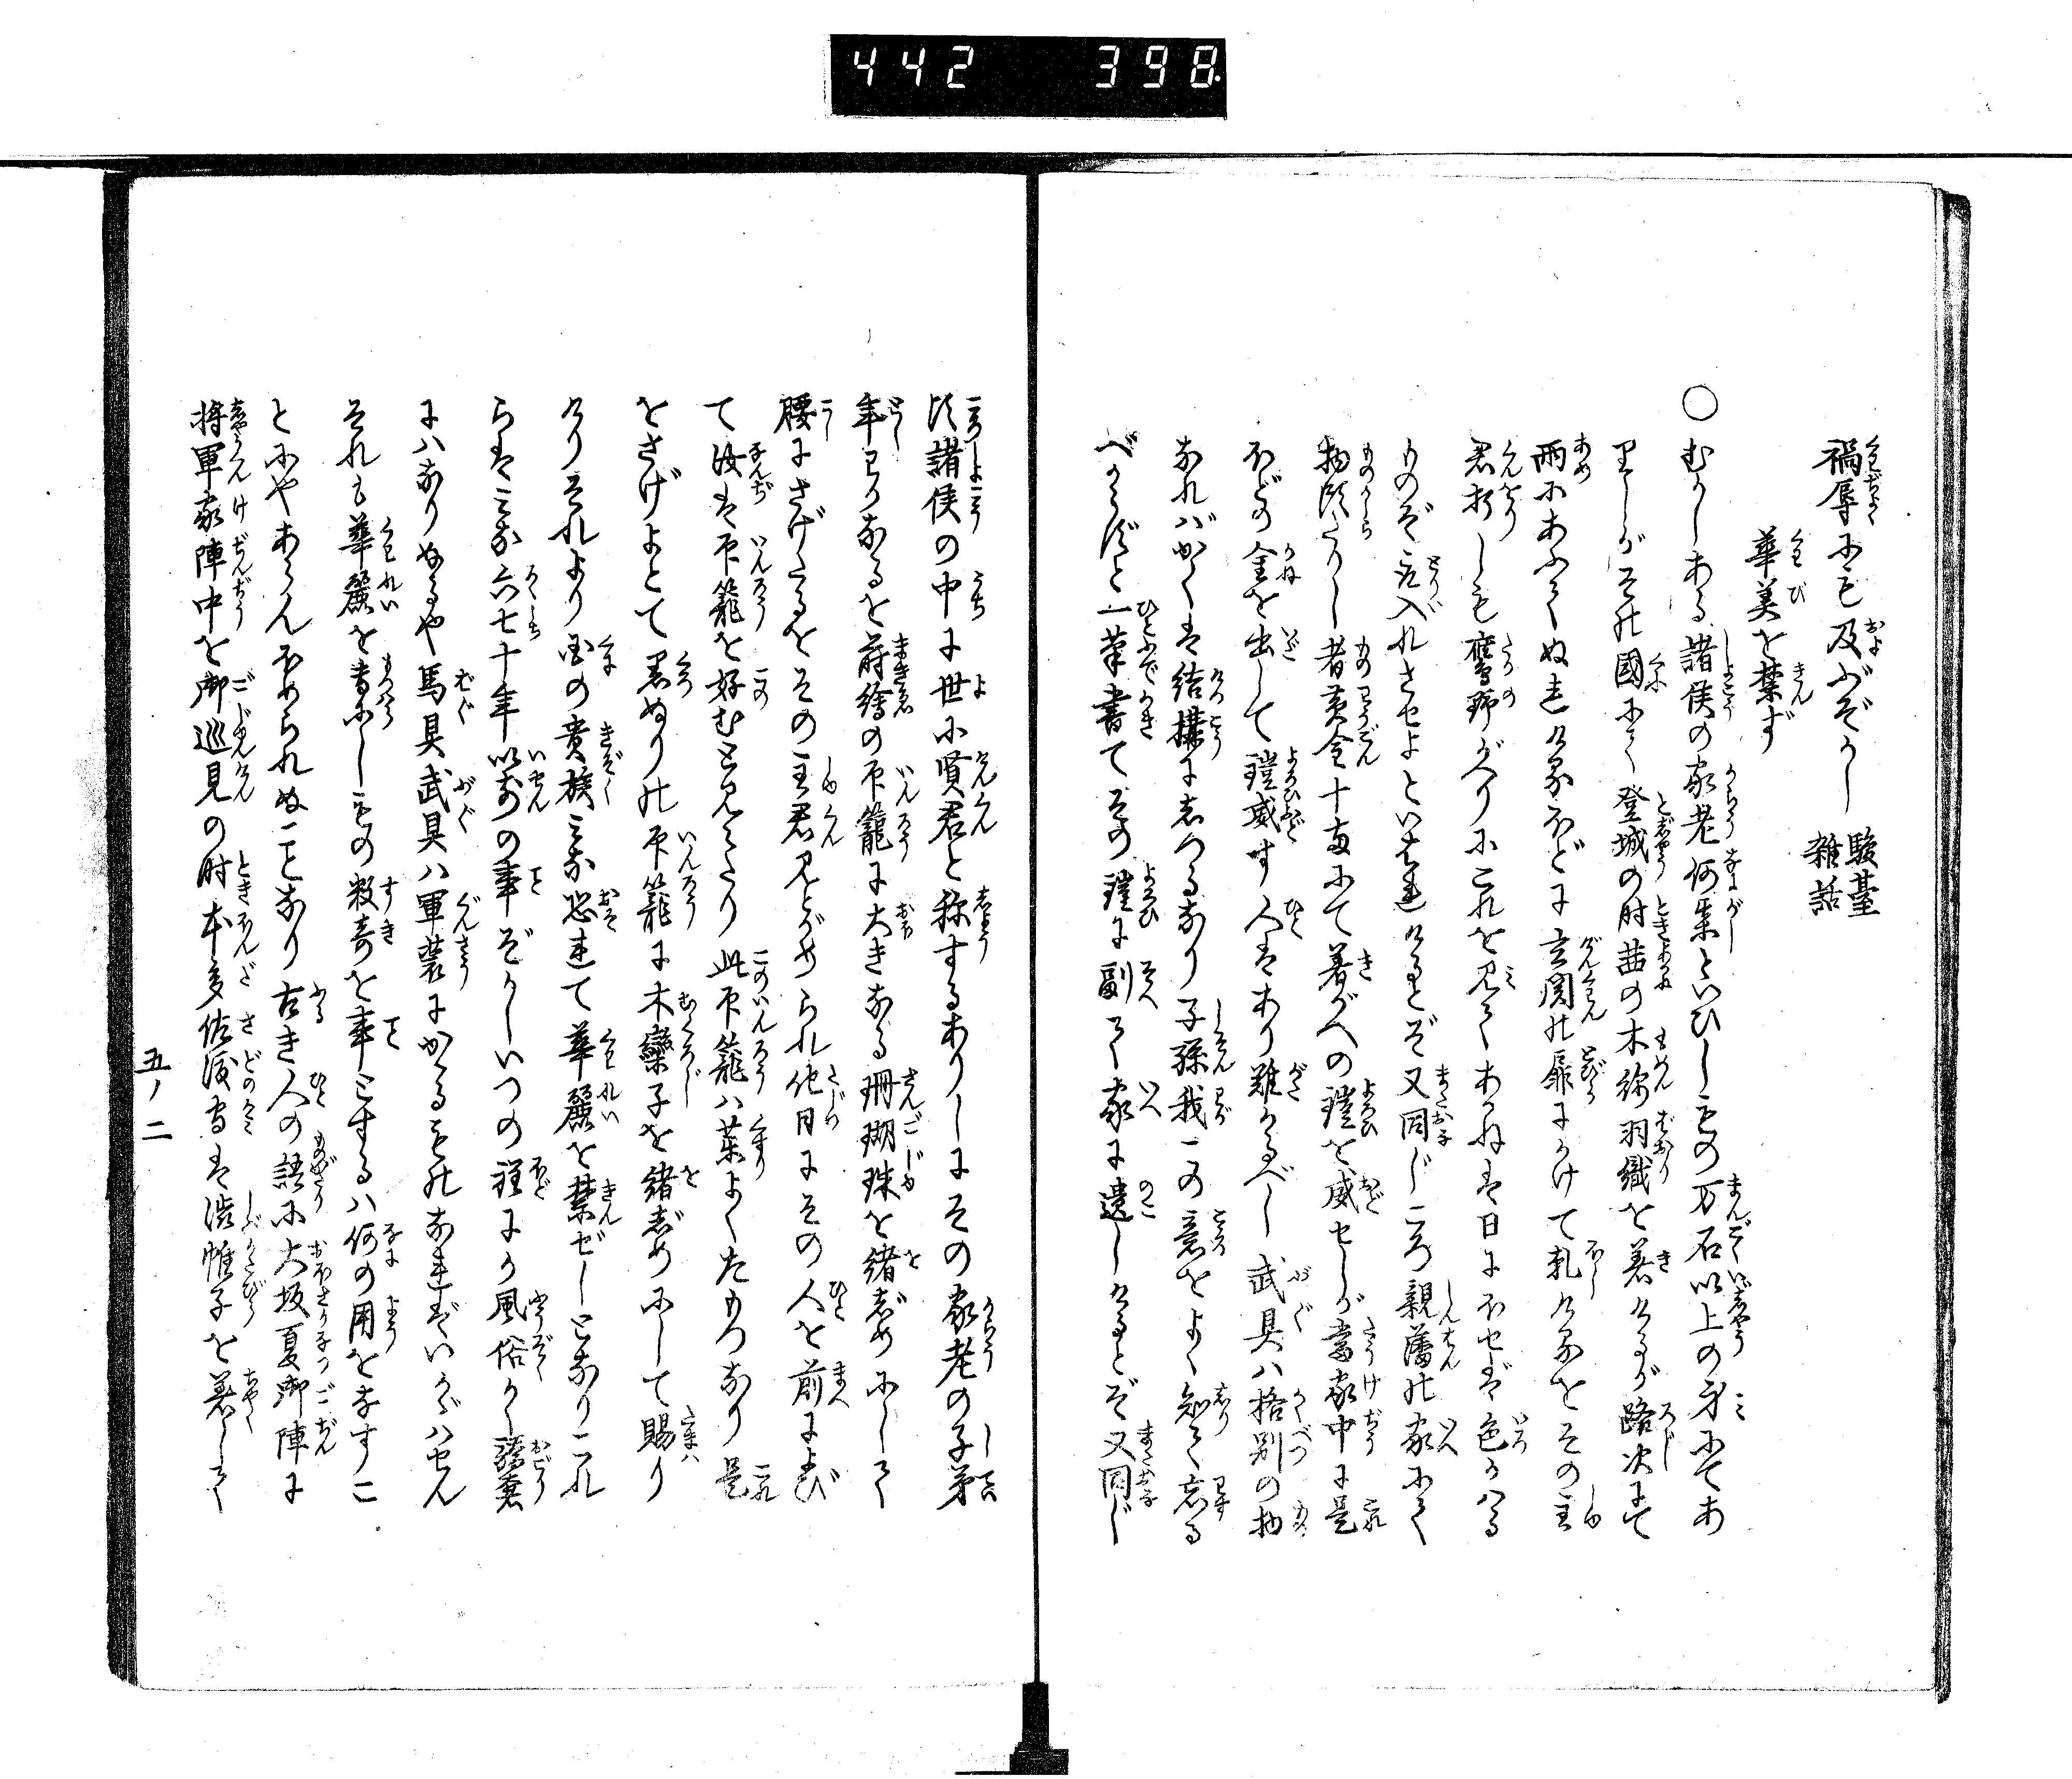 442 398.
禍辱にも及ぶぞかし 駿臺雑話
華美を禁ず
○むかしある諸侯の家老何某といひしもの万石以上の身にてあ
りしがその國にて登城の時茜の木綿羽織を着けるが路次にて
雨にあふてぬれける程に玄関の扉にかけて乾けるをその主
君折しも鷹野がへりにこれを見てあかねは日にほせば色かはる
ものぞ取入れさせよといはれけるとぞ又同じころ親藩の家にて
物頭たりし者黄金十両にて着がへの鎧を威せしが當家中に是
ほどの金を出して鎧威す人はあり難かるべし武具ハ格別の物
なればかくは結構にしつるなり子孫我この意をよく知て忘る
べからずと一筆書てその鎧に副て家に遺しけるとぞ又同じ
頃諸侯の中に世に賢君と称するありしにその家老の子弟
年わかなるを蒔繪の印籠に大きなる珊瑚珠を緒じめにして
腰にさげたるをその主君見とがめられ他日にその人を前によび
て汝は印籠を好むと見えたり此印籠ハ薬よくたもつなり是
をさげよとて黒ぬりの印籠に木欒子を緒じめにして賜り
けりそれより国の貴族みな恐れて華麗を禁ぜしとなりこれ
らはみな六七十年以前の事ぞかしいつの程にか風俗かく驕奢
にハなりぬるや馬具武具ハ軍装にかゝるものなればいかゞハせん
それも華麗を専にしもの数寄を事とするハ何の用をなすこ
とにやあらんほめられぬことなり古き人の語に大坂夏御陣に
将軍家陣中を御巡見の時本多佐渡守は渋帷子を着して
五ノ二